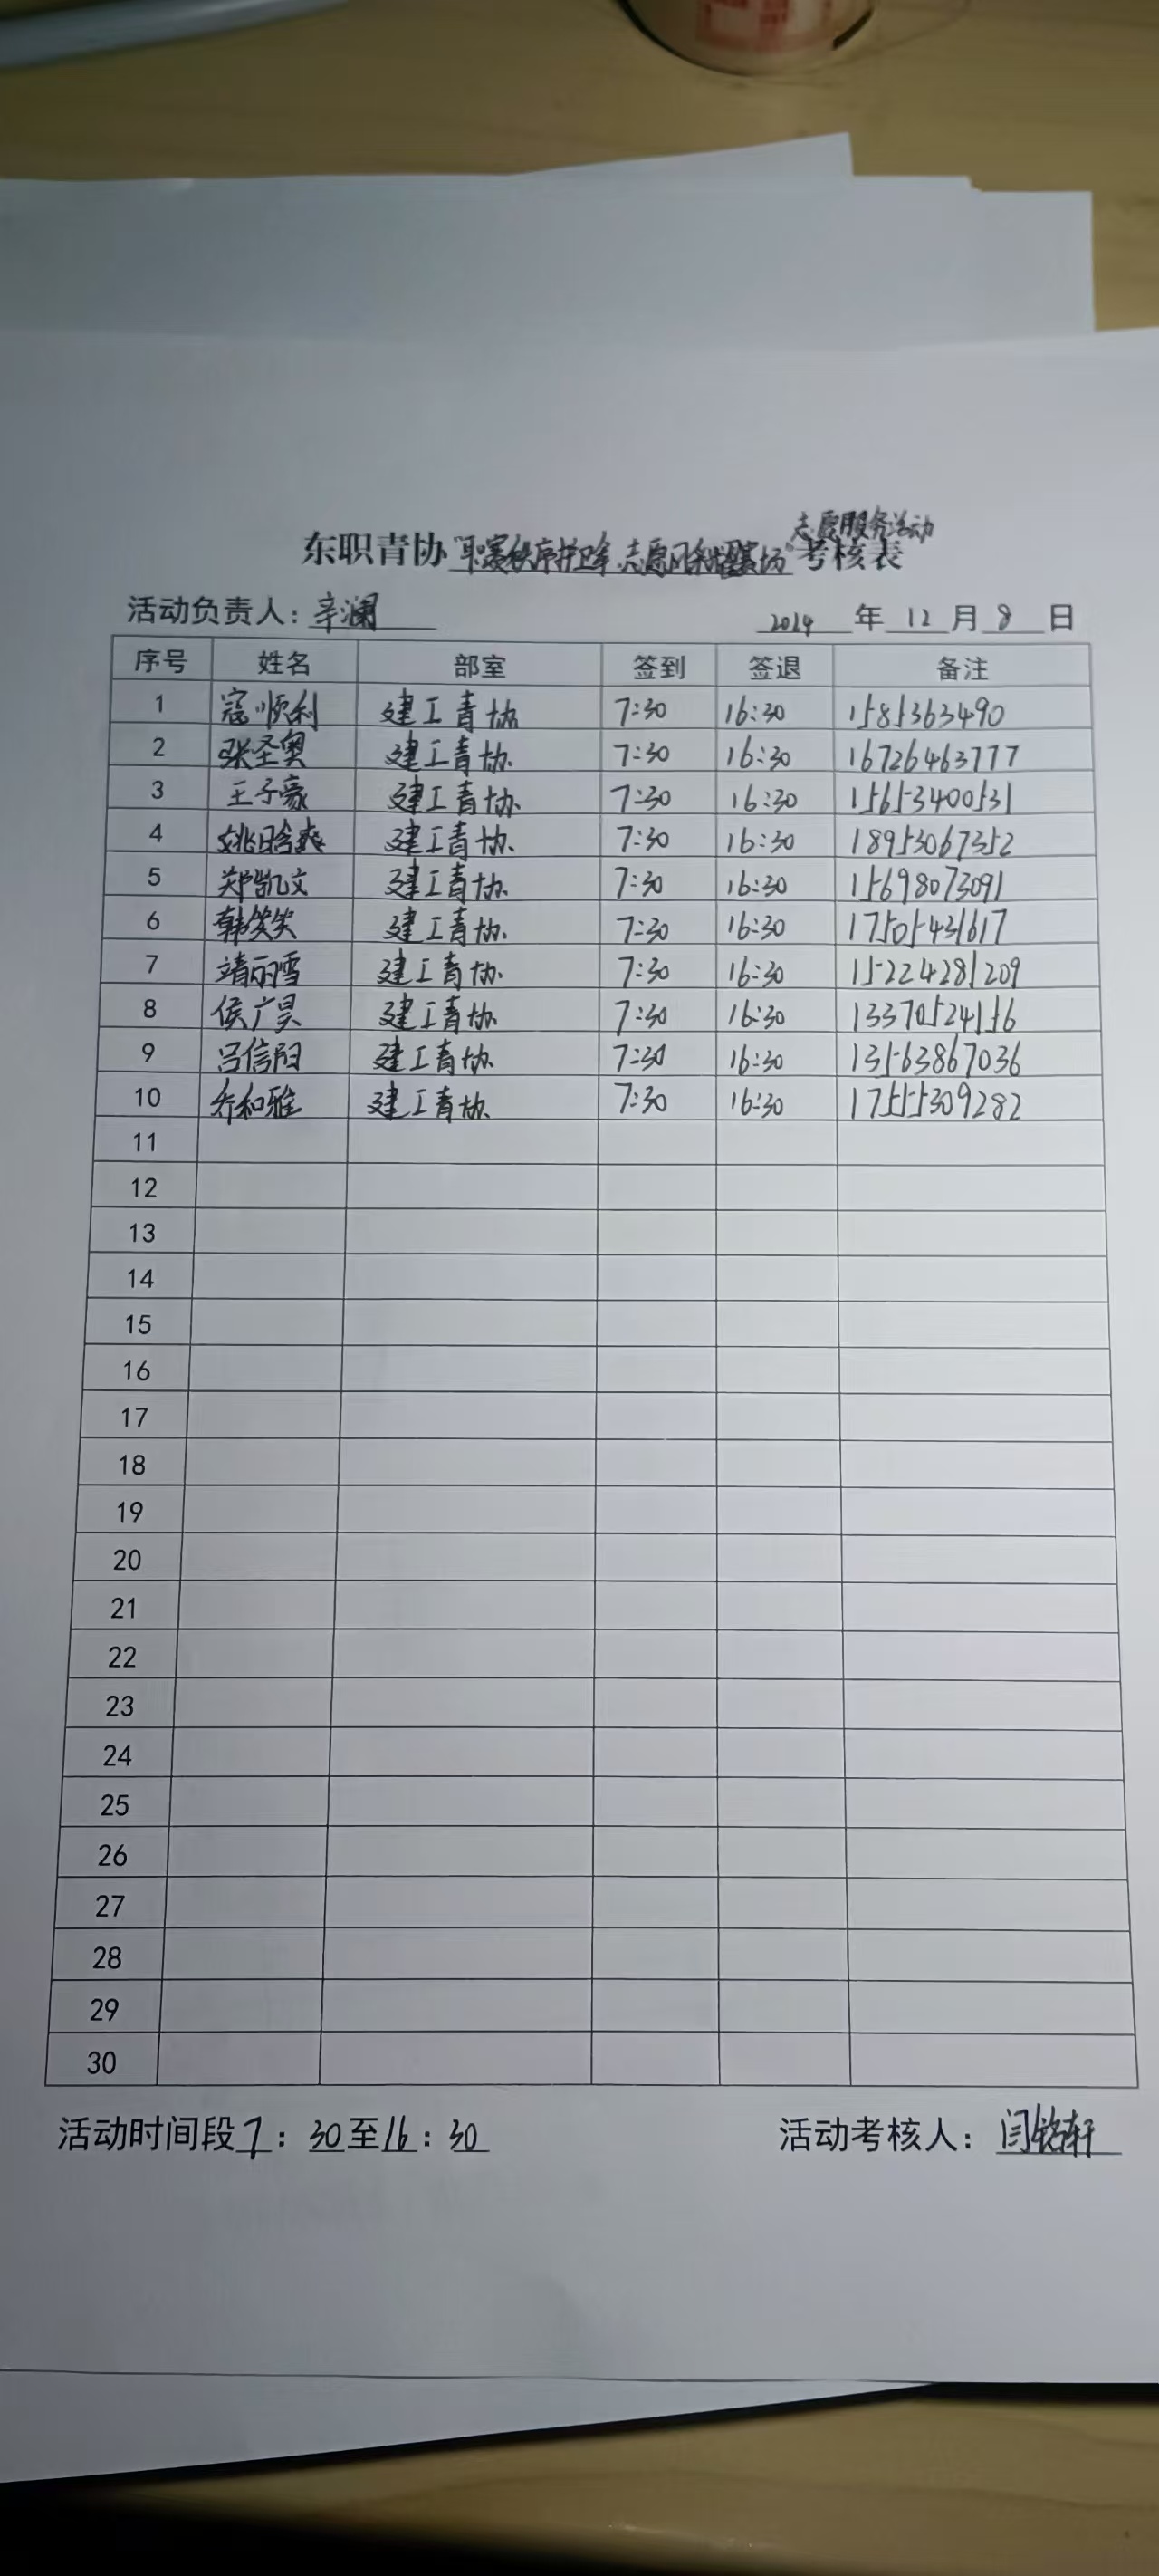 志愿服务活动
东职青协 考核表
活动负责人：辛澜 2024 年 12 月 8 日
序号 姓名 部室 签到 签退 备注
1 寇顺利 建工青协 7:30 16:30 1585363490
2 张圣奥 建工青协. 7:30 16:30 16726463777
3 王子豪 建工青协. 7:30 16:30 15653400531
4 姚晗爽 建工青协. 7:30 16:30 18953067352
5 郑凯文 建工青协. 7:30 16:30 15698073091
6 韩笑笑 建工青协. 7:30 16:30 17505431617
7 靖丽雪 建工青协. 7:30 16:30 15224281209
8 侯广昊 建工青协. 7:30 16:30 13370524156
9 吕信阳 建工青协. 7:30 16:30 13563867036
10 乔和雅 建工青协. 7:30 16:30 17555309282
11
12
13
14
15
16
17
18
19
20
21
22
23
24
25
26
27
28
29
30
活动时间段 7：30至16：30 活动考核人：闫铭轩